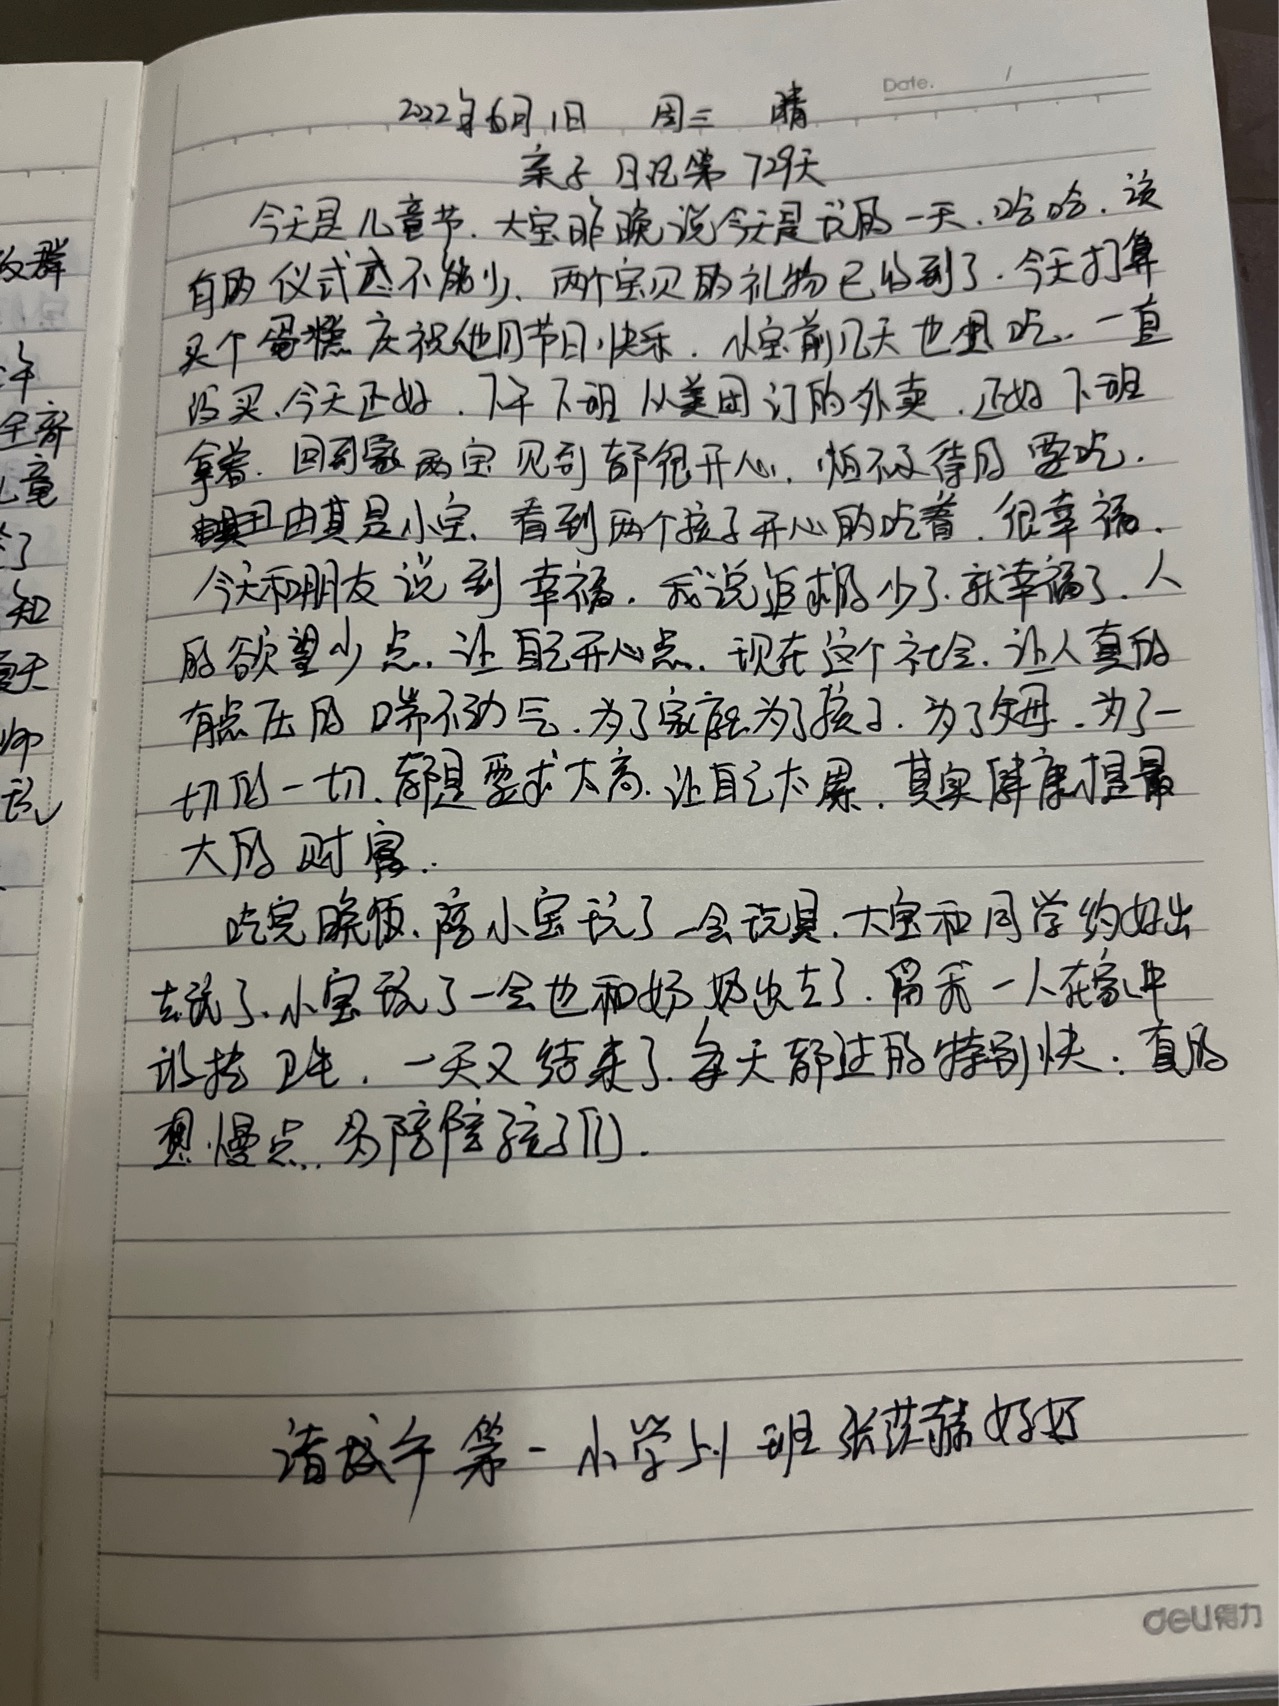 Date. /
2022年6月1日 周三 晴
亲子日记第729天
今天是儿童节.大宝昨晚说今天是玩的一天.哈哈.该
有的仪式感不能少、两个宝贝的礼物已收到了.今天打算
买个蛋糕庆祝他们节日快乐.小宝前几天也要吃.一直
没买、今天还好.下午下班从美团订的外卖.还好下班
拿着.回到家两宝见到都很开心.怕不及待的要吃.
由其是小宝、看到两个孩子开心的吃着.很幸福.
今天和朋友说到幸福.我说追求的少了.就幸福了.人
的欲望少点.让自己开心点.现在这个社会.让人真的
有点压的喘不动气.为了家庭为了孩子.为了父母.为了一
切的一切、都是要求太高.让自己太累.其实健康才是最
大的财富.
吃完晚饭.陪小宝玩了一会玩具.大宝和同学约好出
去玩了、小宝玩了一会也和奶奶出去了.留我一人在家中
收拾卫生.一天又结束了.每天都过的特别快:真的
想慢点.多陪陪孩子们.
诸城市第一小学5.1班张 赫妈妈
deli得力
故群
午
全齐
儿童
了
知
夏天
师
玩